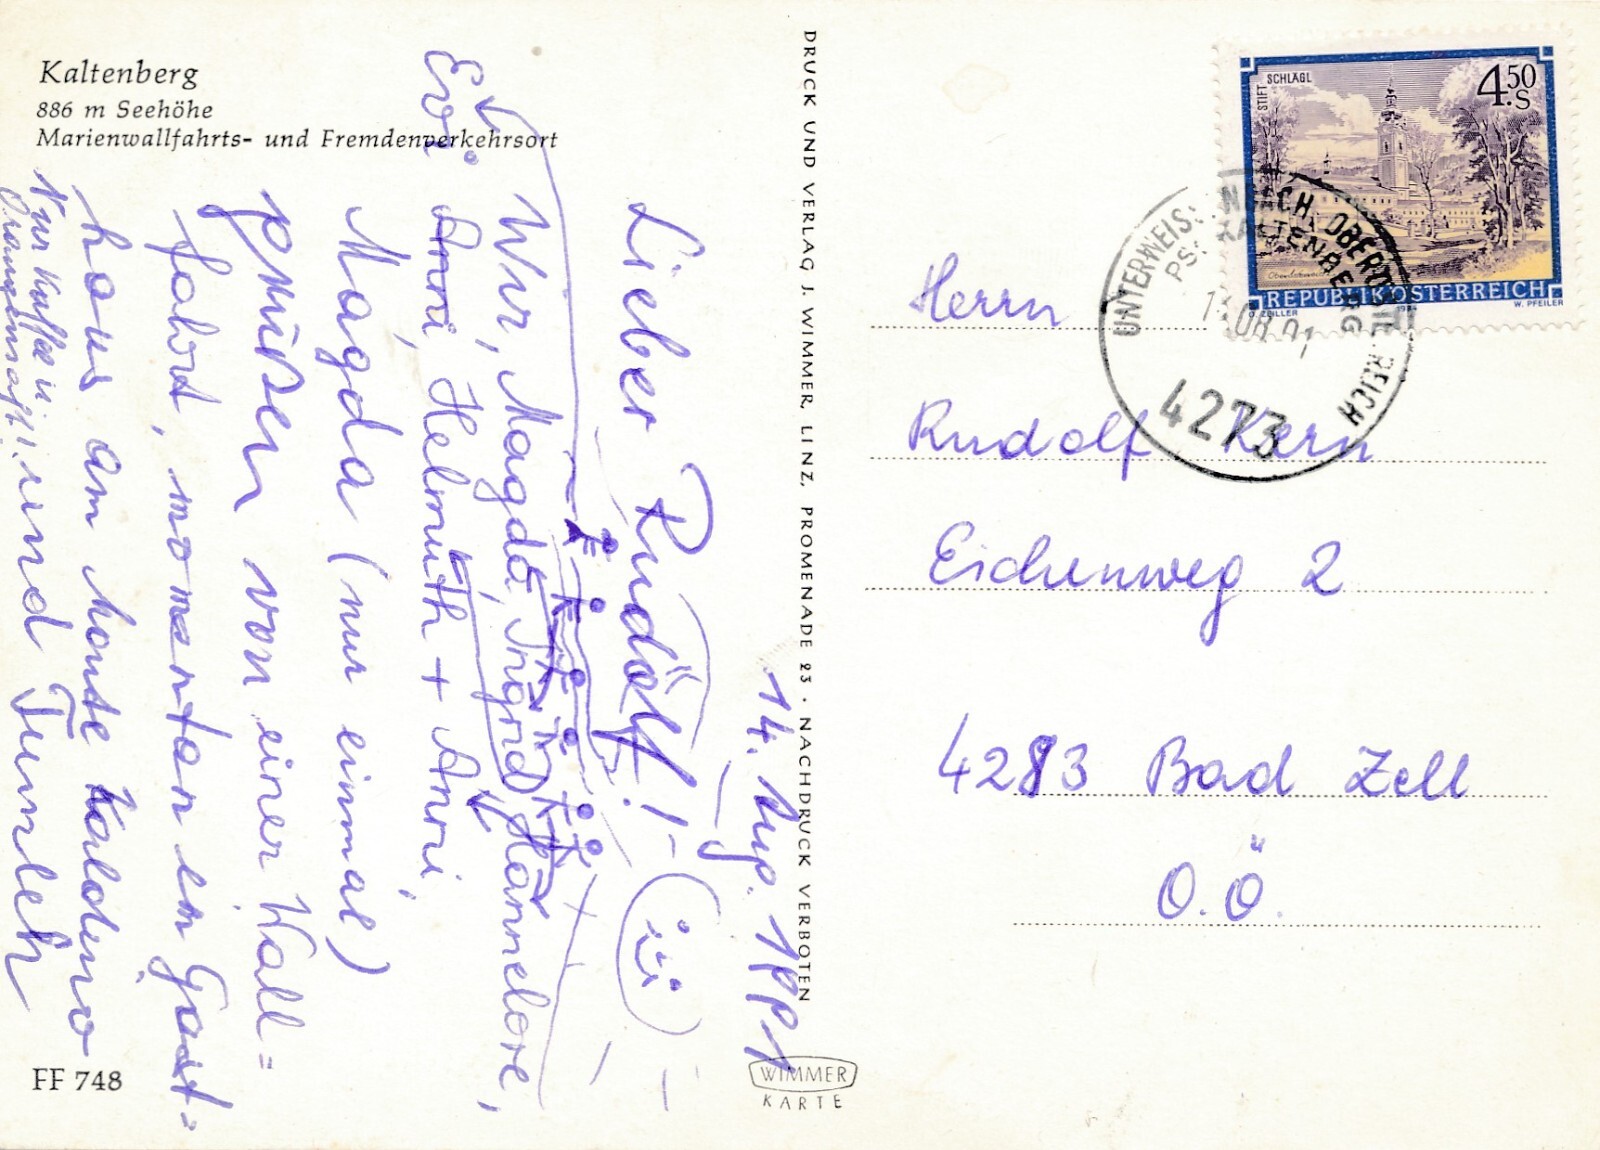 Kaltenberg
886 m Seehöhe
Marienwallfahrts- und Fremdenverkehrsort
14. Aug. 1991
Lieber Rudolf!
Wir, Magda, Ingrid, Hannelore,
Evi, Anni, Helmuth + Anni,
Magda (nur einmal)
grüßen von einer Wall=
fahrt, momentan im Gast=
haus am Monte Kaldino
und Turnleh
Nur Kaffee in
FF 748
DRUCK UND VERLAG J. WIMMER, LINZ, PROMENADE 23 · NACHDRUCK VERBOTEN
WIMMER
KARTE
STIFT SCHLÄGL
4.50 S
REPUBLIK ÖSTERREICH
O. ZEILLER
W. PFEILER
KALTENBERG
08.91
4273
Herrn
Rudolf Kern
Eichenweg 2
4283 Bad Zell
O.Ö.